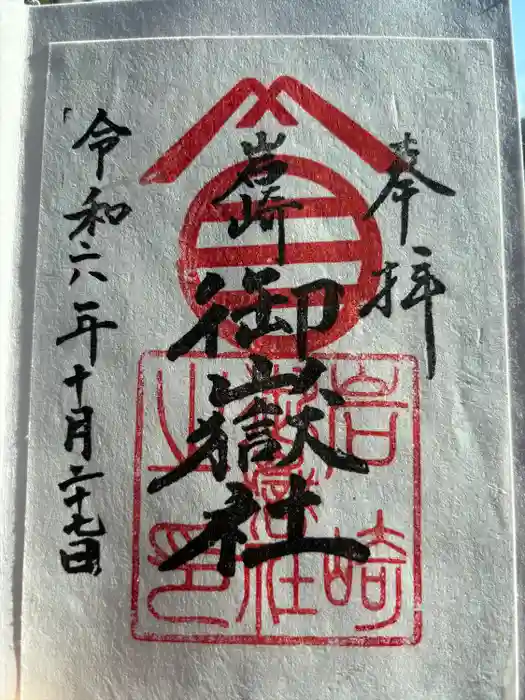 奉拝
岩崎
御嶽社
令和六年十月二十七日
岩崎
御嶽社
之印